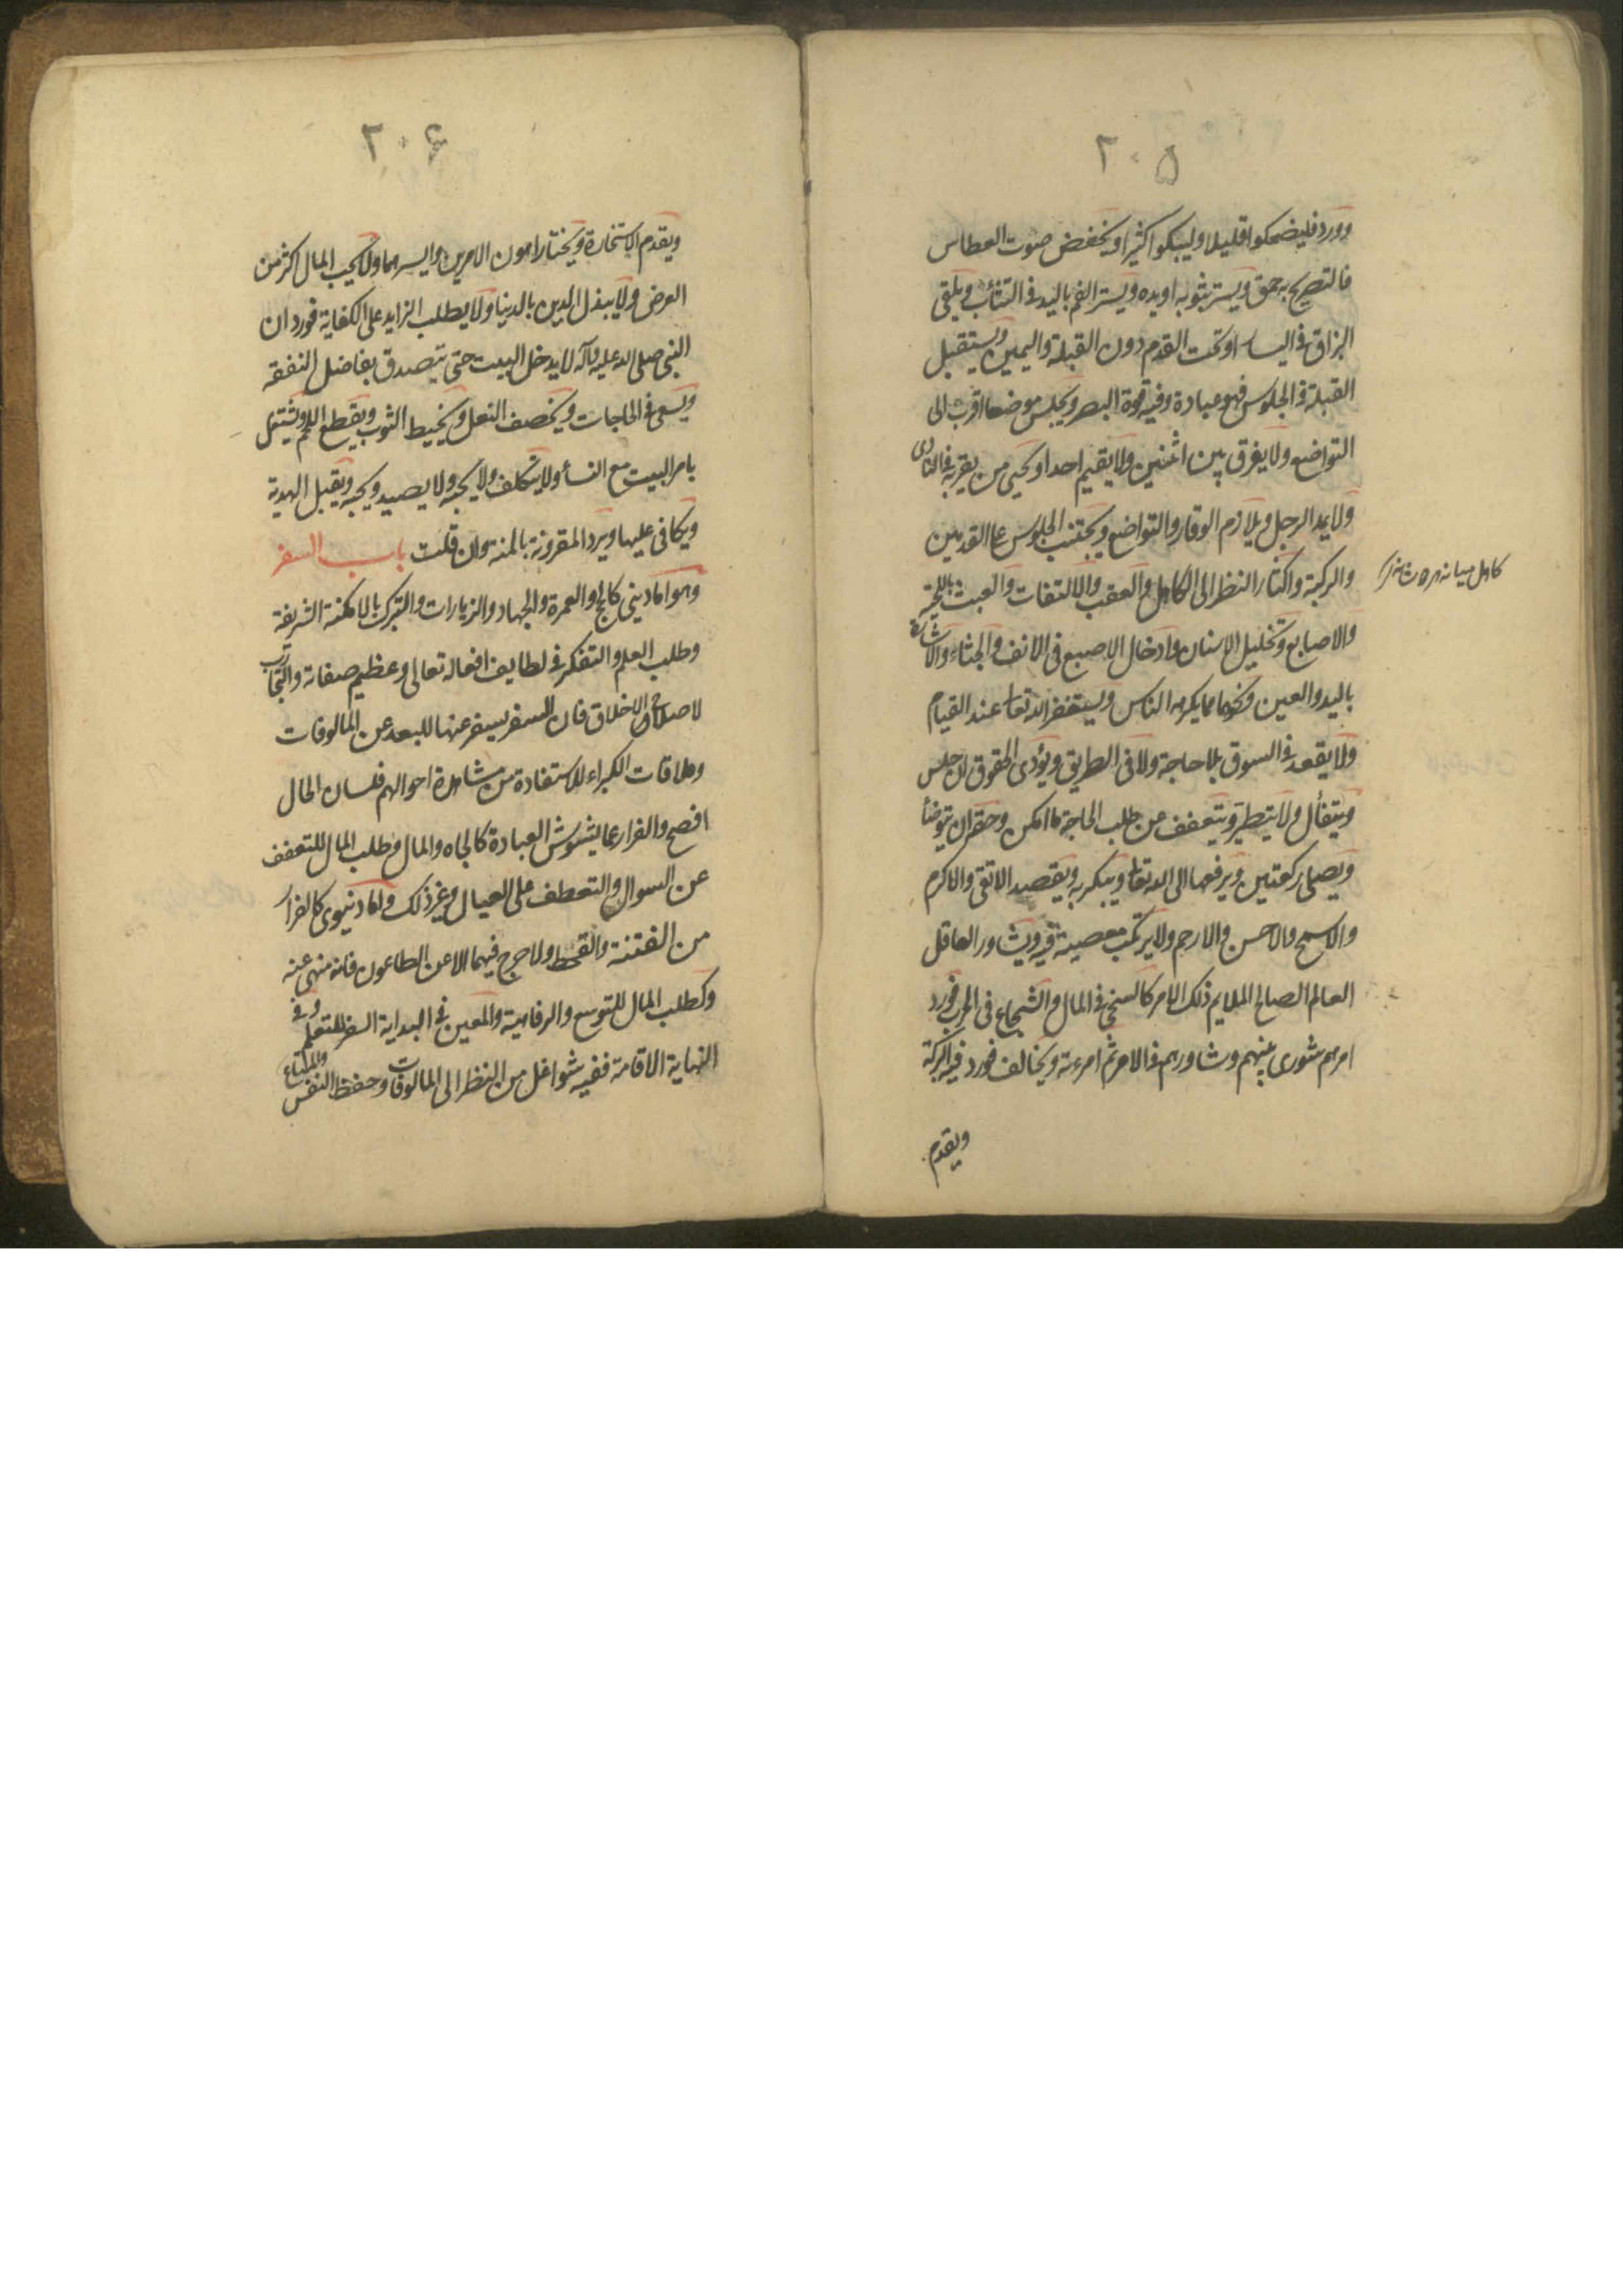 ٢٠۵
وورد فليضحكوا قليلا وليبكوا كثيرا ويخفض صوت العطاس
فالتصريح به حمق ويستر بثوبه او يده ويستر الفم باليد في التثائب ويلقى
البزاق في اليسار او تحت القدم دون القبلة واليمين ويستقبل
القبلة في الجلوس فهو عبادة وفيه قوة البصر ويجلس موضعا اقرب الى
التواضع ولا يفرق بين اثنين ولا يقيم احدا ويحيى من يقربه في النادى
ولا يمد الرجل ويلازم الوقار والتواضع ويجتنب الجلوس على القدمين
والركبة واكثار النظر الى الكاهل والعقب والالتفات والعبث باللحية
كاهل ميانه هر دو شانه را
والاصابع وتخليل الاسنان وادخال الاصبع في الانف والجثاء والاشارة
باليد والعين ونحوها مما يكرهه الناس ويستغفر الله تعا عند القيام
ولا يقعد في السوق بلا حاجة ولا في الطريق ويؤدى الحقوق ان جلس
ويتفأل ولا يتطير ويتعفف عن طلب الحاجة ما امكن وحقه ان يتوضأ
ويصلى ركعتين ويرفعها الى الله تعا ويبكر به ويقصد الاتقى والاكرم
والاسمح والاحسن والارحم ولا يرتكب معصية فيه ويشاور العاقل
العالم الصالح الملايم ذلك الامر كالسخى في المال والشجاع في الحرب فورد
امرهم شورى بينهم وشاورهم في الامر ثم امرءته ويخالف فورد فيه البركة
ويقدم
٢٠۶
ويقدم الاستخارة ويختار اهون الامرين وايسرهما ولا يحب المال اكثر من
العرض ولا يبذل الدين بالدنيا ولا يطلب الزايد على الكفاية فورد ان
النبى صلى الله عليه وآله لا يدخل البيت حتى يتصدق بفاضل النفقه
ويسعى في الحاجات ويخصف النعل ويخيط الثوب ويقطع اللحم ويشتغل
بامر البيت مع النسأ ولا يتكلف ولا يجبه ولا يصيد ويحبه ويقبل الهدية
ويكافى عليها ويرد المقرونة بالمنه وان قلت باب السفر
وهو اما دينى كالحج او العمرة والجهاد والزيارات والتبرك بالامكنة الشريفة
وطلب العلم والتفكر في لطايف افعاله تعالى وعظيم صفاته والتجارب
لاصلاح الاخلاق فان السفر يسفر عنها للبعد عن المالوفات
وملاقات الكبراء للاستفادة من مشاهدة احوالهم فلسان الحال
افصح والفرار عما يشوش العبادة كالجاه والمال وطلب المال للتعفف
عن السوال والتعطف على العيال وغير ذلك واما دنيوى كالفرار
من الفتنة والقحط ولا حرج فيهما الا عن الطاعون فانه منهى عنه
وكطلب المال للتوسع والرفاهية والمعين في البداية السفر للتعلم وفى
النهاية الاقامة ففيه شواغل من النظر الى المالوفات وحفظ النفس والمتاع